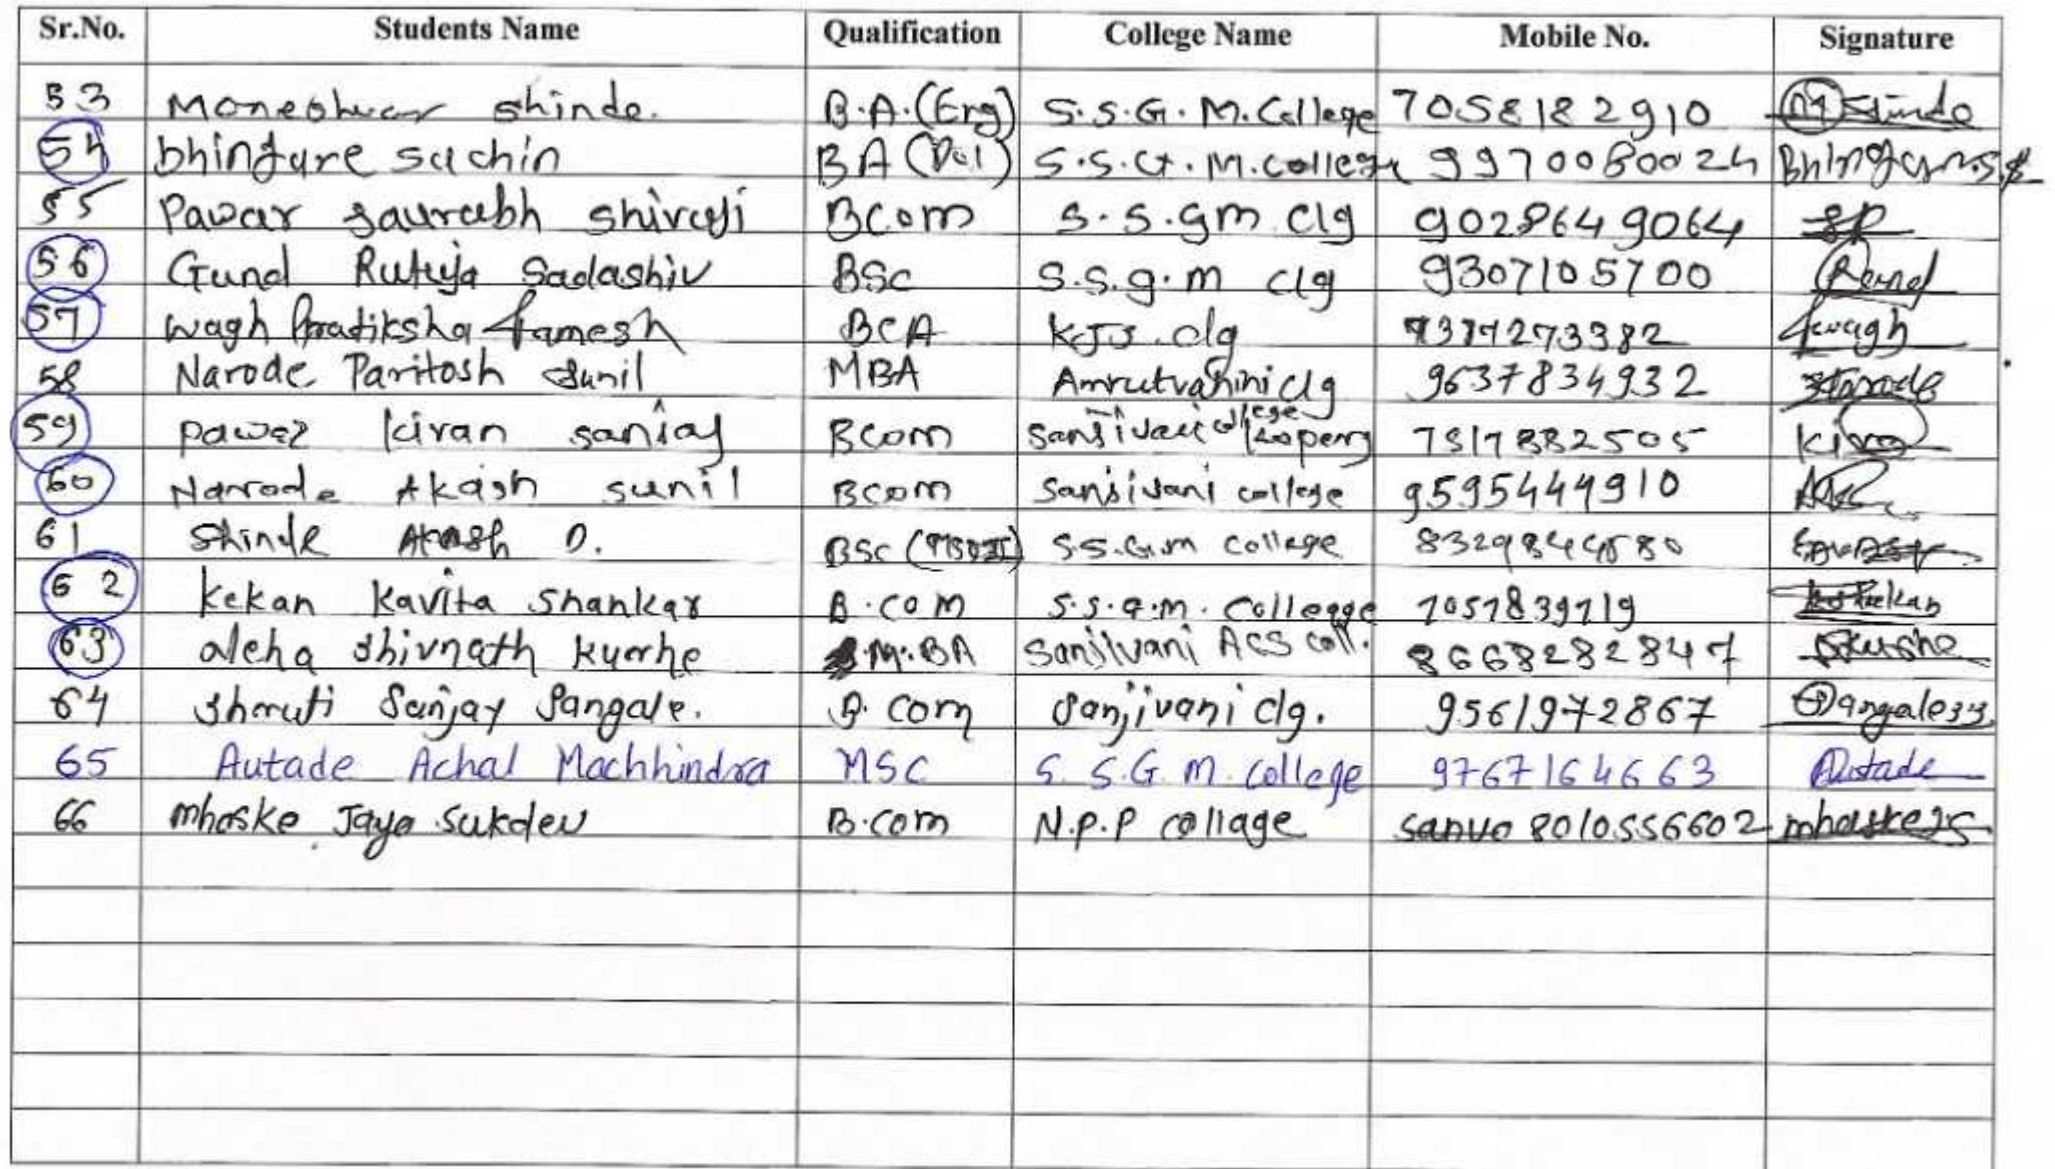 Sr.No. Students Name Qualification College Name Mobile No. Signature
53 Moneshwar Shinde. B.A.(Eng) S.S.G.M.College 7058182910 Shinde
54 bhingare sachin BA (Pol) S.S.G.M.college 9970080024
55 Pawar Saurabh Shivaji BCom S.S.gm clg 9028649064 SP
56 Gund Rutuja Sadashiv BSc S.S.g.m clg 9307105700
57 Wagh Pratiksha Ramesh BCA KJS.clg wagh
58 Narode Paritosh Sunil MBA Amrutvahini clg 9637834932
59 Pawar kiran sanjay Bcom sanjivani college 7517882505 kiran
60 Narode Akash sunil Bcom Sanjivani college 9595444910
61 Shinde Akash D. BSc S.S.G.m college
62 kekan Kavita Shankar B.COM S.S.G.m. Collegge 7057839719
63 Neha Shivnath Kurhe M.BA Sanjivani ACS coll. 8668282847
64 Shruti Sanjay Pangale. B.com Sanjivani clg. 9561972867
65 Autade Achal Machhindra MSC S.S.G.M.College 9767164663 Autade
66 mhaske Jaya Sukdev B.com N.P.P collage 8010556602 mhaske